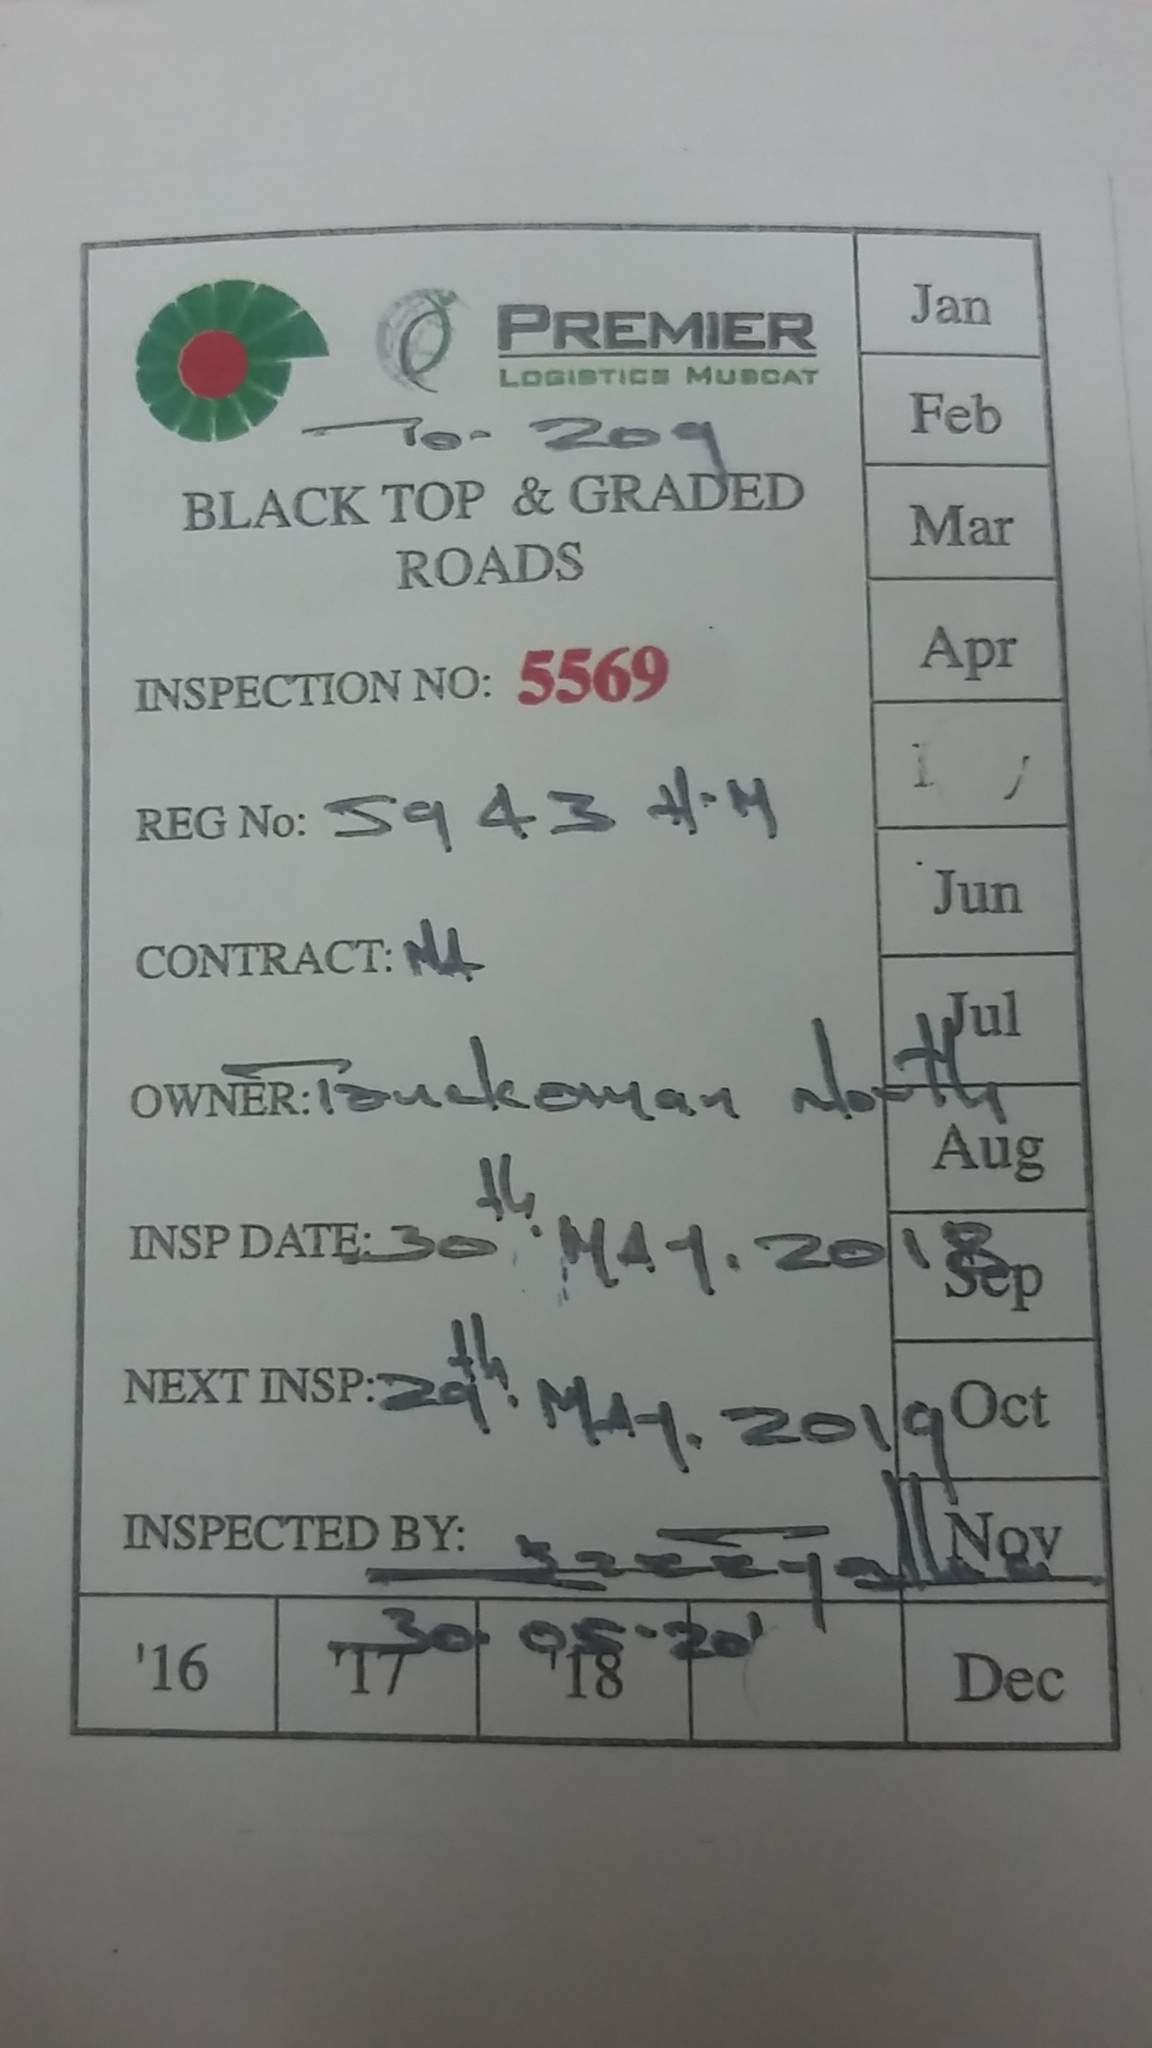 PREMIER
LOGISTICS MUSCAT
To- 209
BLACK TOP & GRADED
ROADS
INSPECTION NO: 5569
REG No: 5943 H.M
CONTRACT: NA
OWNER: Truckoman North
INSP DATE: 30th. MAY. 2018
NEXT INSP: 29th. MAY. 2019
INSPECTED BY:
30. 05.
'16 '17 '18
Jan
Feb
Mar
Apr
Jun
Jul
Aug
Sep
Oct
Nov
Dec